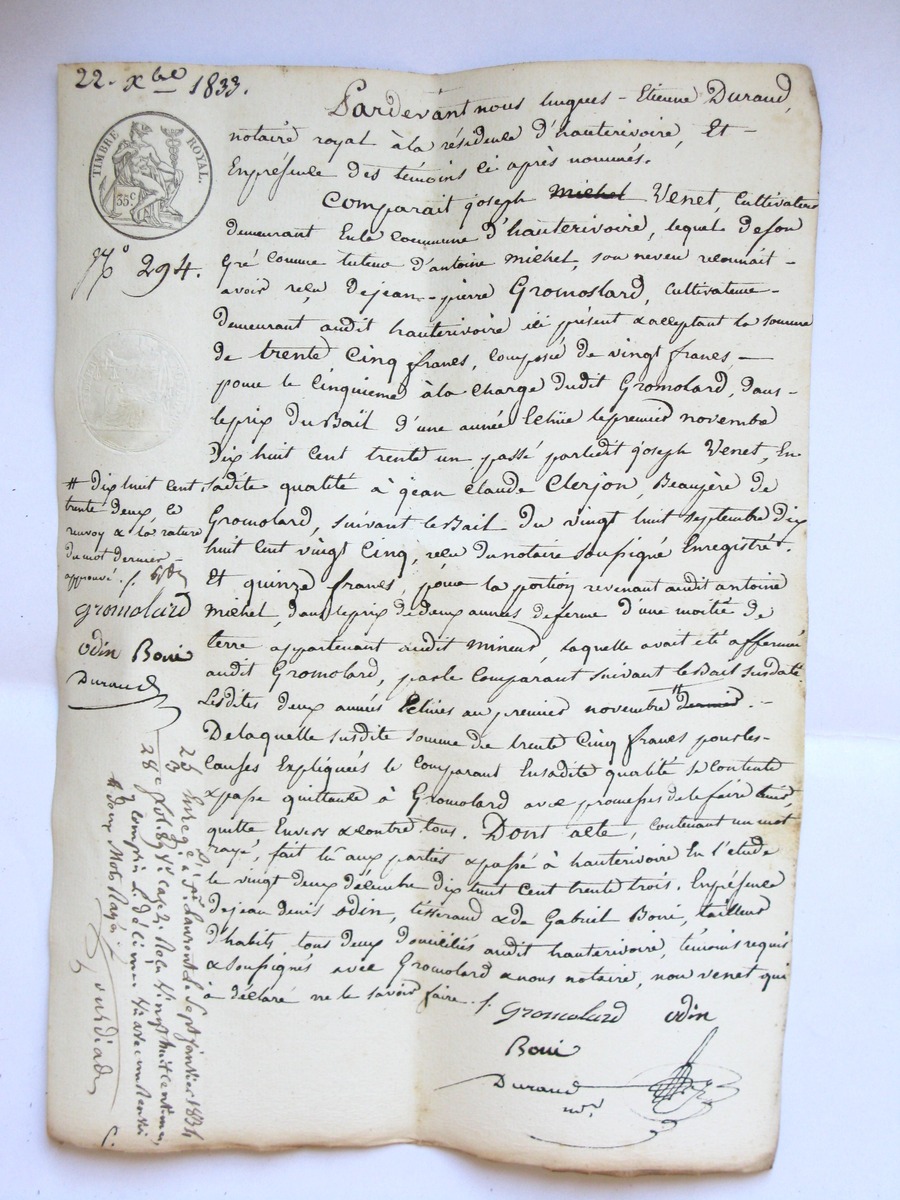 22. xbre 1833.
TIMBRE ROYAL.
35 c
No 294.
Pardevant nous hugues - Etienne Durand,
notaire royal à la résidence d'hauterivoire, Et -
En présence des témoins ci après nommés.
Comparait joseph michel Venet, Cultivateur
demeurant En la Commune d'hauterivoire, lequel de son
gré comme tuteur d'antoine michel, son neveu reconnait -
avoir reçu De jean-pierre Gromolard, Cultivateur -
demeurant audit hauterivoire ici présent & acceptant la somme
de trente Cinq francs, Composée de vingt francs —
pour le Cinquieme à la Charge dudit Gromolard, dans -
le prix du Bail d'une année Echue le premier novembre
dix huit Cent trente un passé par ledit joseph Venet, En
sadite qualité à jean Claude Clerjon, Beaupère de
Gromolard, suivant le Bail du vingt huit septembre dix
huit Cent vingt Cinq, reçu du notaire soussigné Enregistré.
Et quinze francs, pour la portion revenant audit antoine
michel, dans le prix de deux années de ferme d'une moitié de
terre appartenant audit mineur, laquelle avait été affermée
audit Gromolard, par le Comparant suivant le Bail susdaté.
Lesdites deux années Echues au premier novembre # dernier. -
De laquelle susdite somme de trente Cinq francs pour les -
Causes Expliquées le Comparant En sadite qualité se Contente
& passe quittance à Gromolard avec promesses de le faire tenir,
quitte Envers & contre tous. Dont acte, Contenant un mot
rayé, fait lû aux parties & passé à hauterivoire En l'étude
le vingt deux décembre dix huit cent trente trois. En présence
de jean denis odin, tisserand & de Gabriel Boui, tailleur
d'habits tous deux domiciliés audit hauterivoire, témoins requis
& soussignés avec Gromolard & nous notaire, non venet qui
à déclaré ne le savoir faire. /.
Gromolard odin
Boui
Durand
nre
# Dix huit Cent
trente Deux, le
renvoy & la rature
du mot dernier
approuvé. /.
gromolard
odin Boui
Durand
Enregé à St Laurent le Sept Janvier 1834
fol. 89 Vo Ca. 2. Reçu Vingt huit centimes
y compris le décime
# Deux Mots Rayés